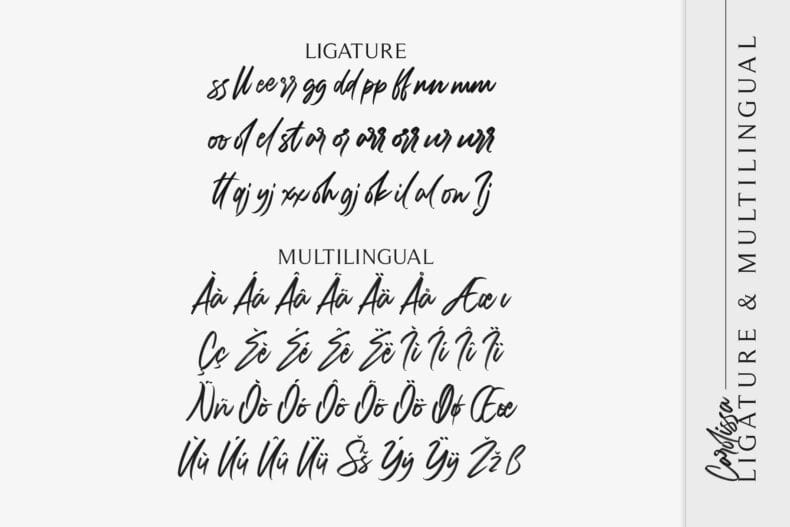 LIGATURE
ss ll ee rr gg dd pp ff nn mm
oo ol el st ar or arr orr ur urr
tt qj yj xx oh gj ok il al on Ij
MULTILINGUAL
Àà Áá Ââ Ãã Ää Åå Ææ ı
Çç Èè Éé Êê Ëë Ìì Íí Îî Ïï
Ññ Òò Óó Ôô Õõ Öö Øø Œœ
Ùù Úú Ûû Üü Šš Ýý Ÿÿ Žž ß
Cordissa
LIGATURE & MULTILINGUAL